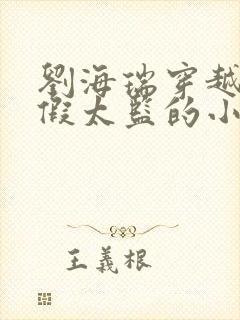 劉海瑞穿越
假太監的小
王義根